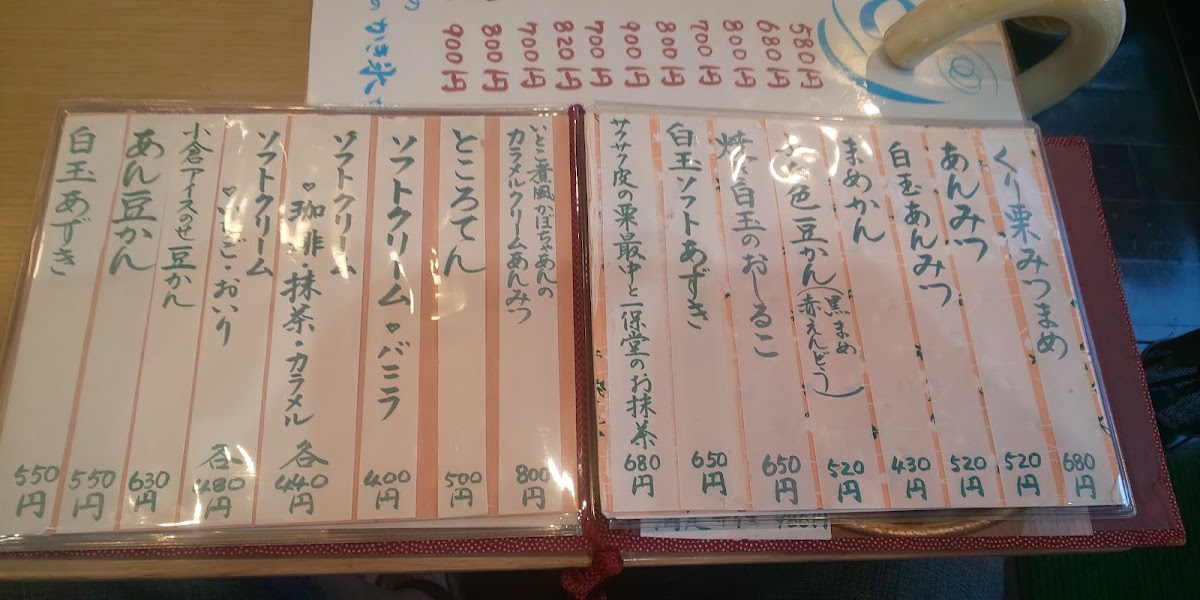 580円
680円
800円
700円
800円
900円
700円
820円
700円
800円
900円
のかき氷
くり栗みつまめ 680円
あんみつ 520円
白玉あんみつ 520円
まめかん 430円
色豆かん(黒まめ 赤えんどう) 520円
焼き白玉のおしるこ 650円
白玉ソフトあずき 650円
サクサク皮の栗最中と一保堂のお抹茶 680円
いとこ煮風かぼちゃあんの
カラメルクリームあんみつ 800円
ところてん 500円
ソフトクリーム♥バニラ 400円
ソフトクリーム
♥珈琲・抹茶・カラメル 各440円
ソフトクリーム
♥いちご・おいり 各480円
小倉アイスのせ豆かん 630円
あん豆かん 550円
白玉あずき 550円